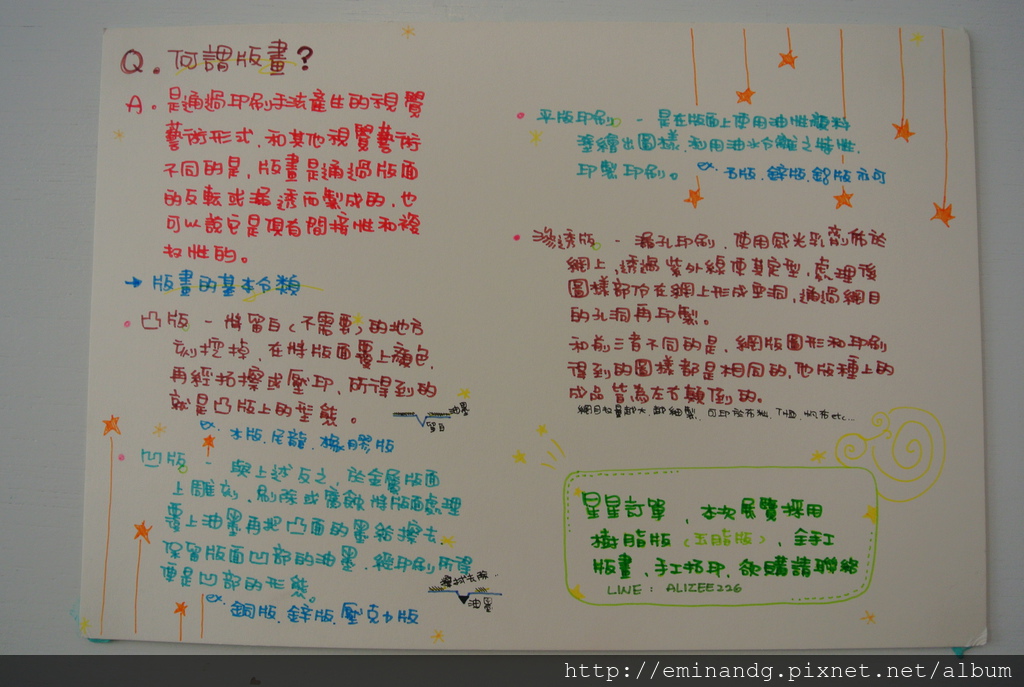 Q. 何謂版畫?
A. 是通過印刷手法產生的視覺
藝術形式.和其他視覺藝術
不同的是,版畫是通過版面
的反転或漏透而製成的,也
可以說它是頂有間接性和複
扨性的。
→ 版畫的基本分類
• 凸版 - 將留白(不需要)的地方
刻挖掉,在將版面覆上顏色,
再經拓擦或壓印,所得到的
就是凸版上的型態。
油墨
留白
ex. 木版.尼龍.橡膠版
• 凹版 - 與上述反之,於金屬版面
上雕刻、刷除或腐蝕將版面處理
覆上油墨再把凸面的墨給擦去,
保留版面凹部的油墨,經印刷所得
便是凹部的形態。
擦拭去除
油墨
ex. 銅版.鋅版.壓克力版
• 平版印刷 - 是在版面上使用油性顏料
塗繪出圖樣,利用油水分離之特性,
印製印刷。 ex. 石版.鋅版.鋁版亦可
• 滲透版 - 漏孔印刷,使用感光乳劑佈於
網上,透過紫外線使其定型,處理後
圖樣部份在網上形成空洞,通過網目
的孔洞再印製。
和前三者不同的是,網版圖形和印刷
得到的圖樣都是相同的,他版種上的
成品皆為左右顛倒的。
網目數量越大,越細製,可印於布料,T恤,帆布etc...
星星訂單,本次展覽採用
樹脂版(五脂版),全手工
版畫,手工拓印,欲購請聯絡
LINE: ALIZEE226
http://eminandg.pixnet.net/album